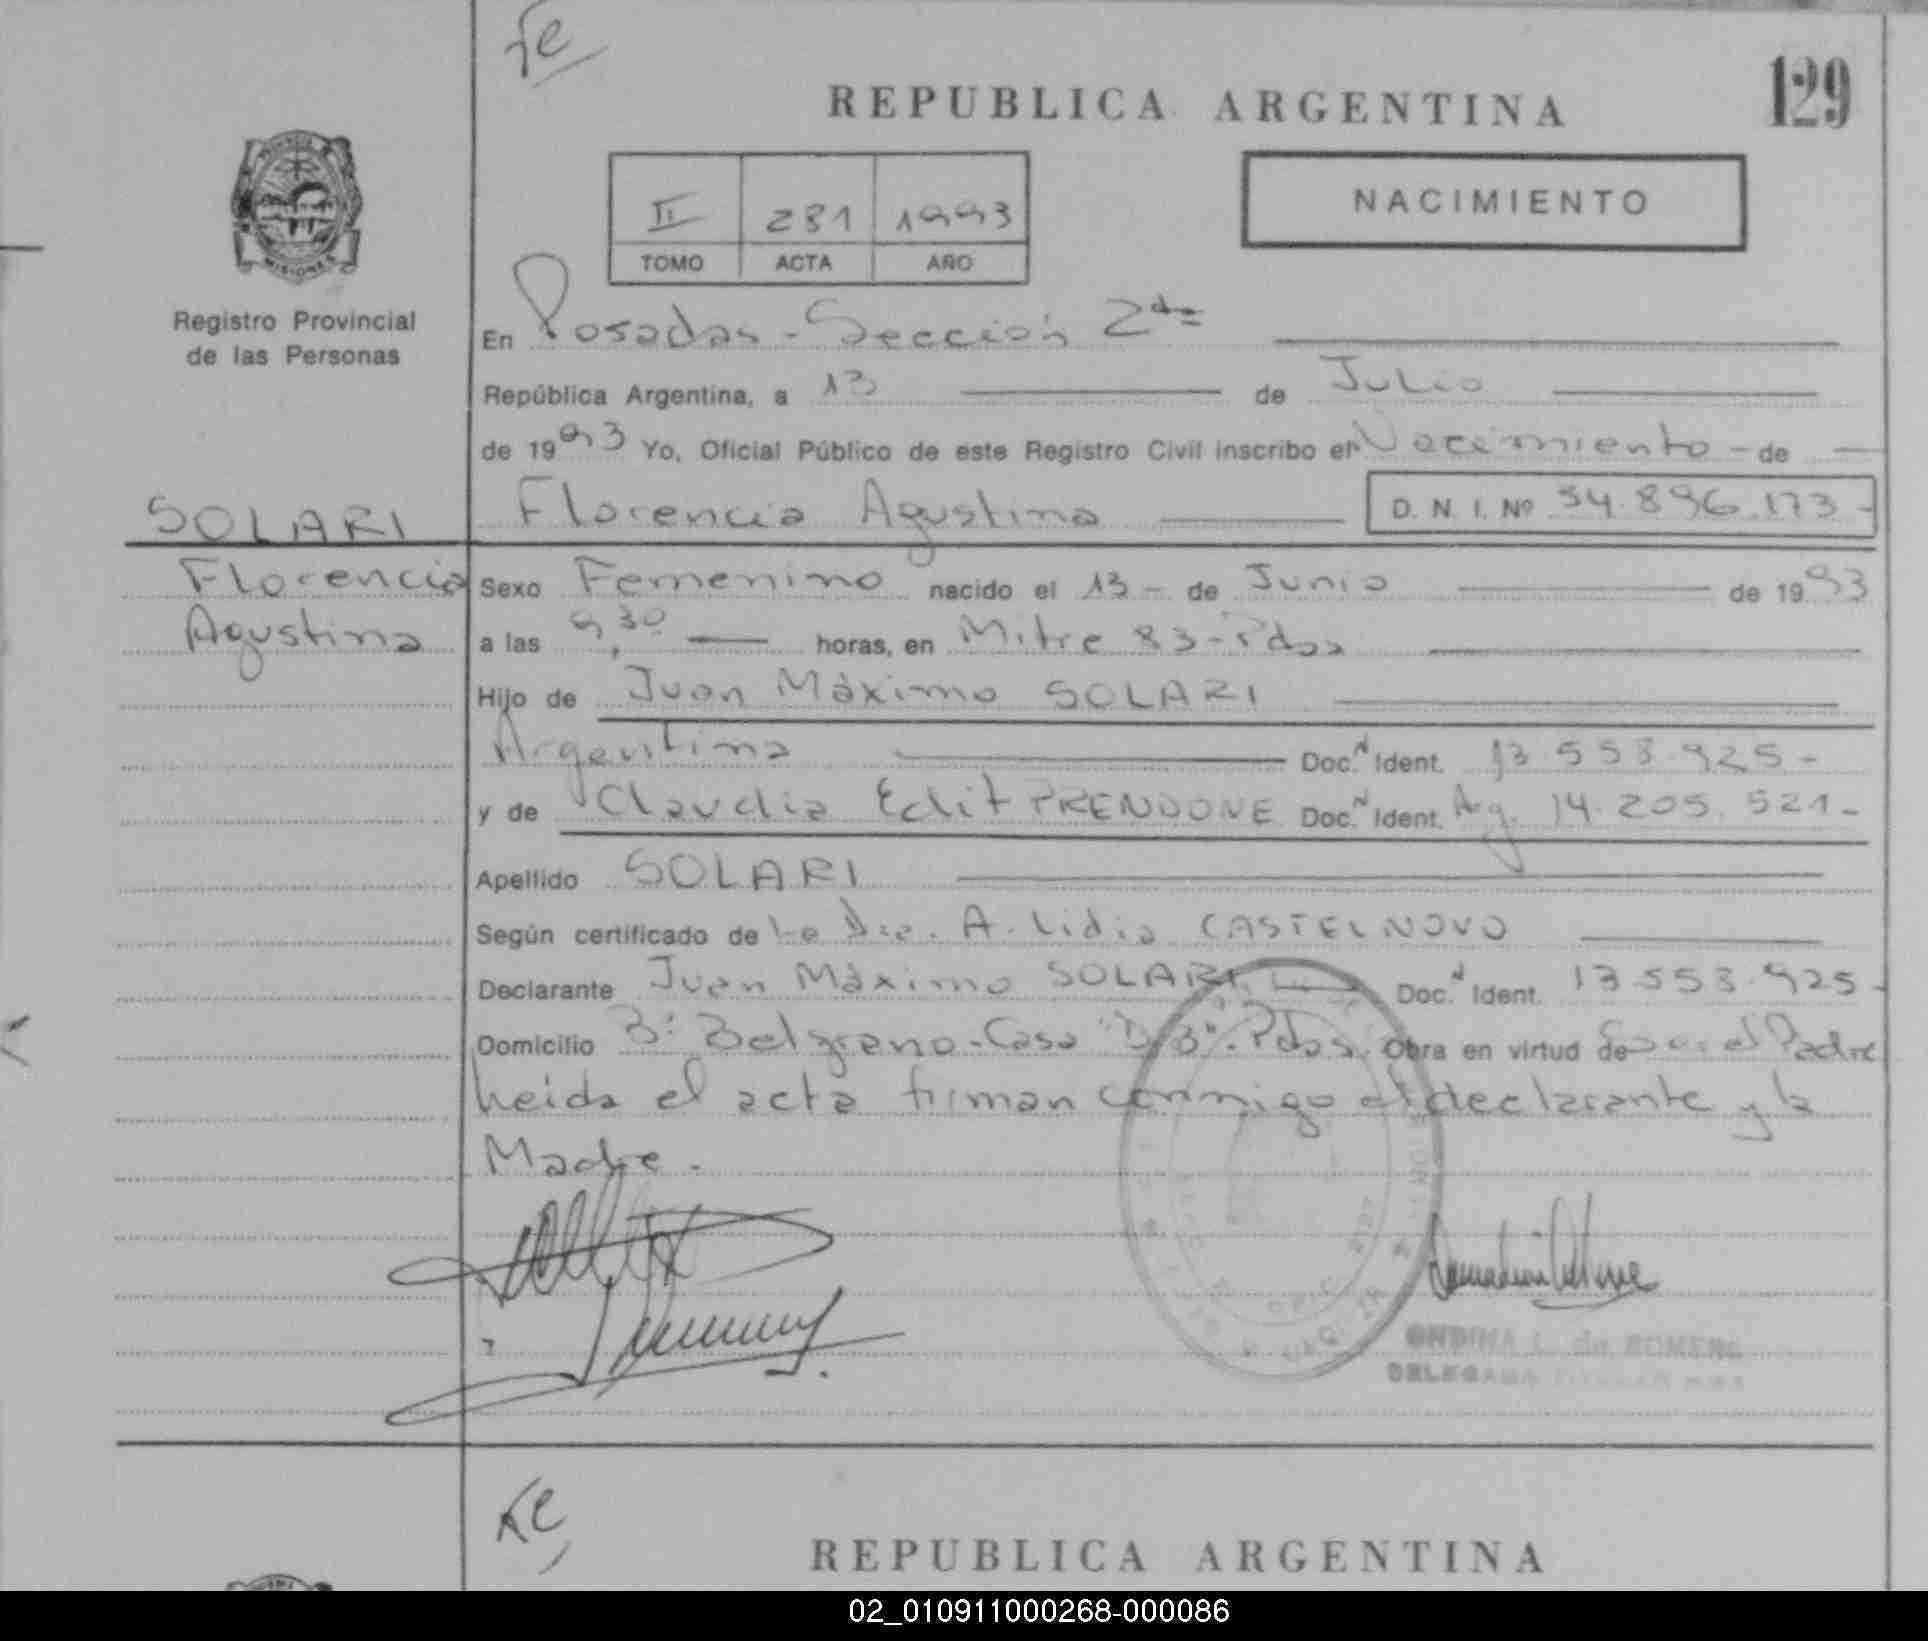 129
REPUBLICA ARGENTINA
NACIMIENTO
II 281 1993
TOMO ACTA AÑO
MISIONES
Registro Provincial
de las Personas
En Posadas - Sección 2da
República Argentina, a 13 de Julio
de 1993 Yo, Oficial Público de este Registro Civil inscribo el Nacimiento - de
SOLARI
Florencia Agustina D. N. I. Nº 34.896.173-
Florencia
Agustina
Sexo Femenino nacido el 13 - de Junio de 1993
a las 9,30 horas, en Mitre 83 - Pdas
Hijo de Juan Máximo SOLARI
Argentina Doc. Ident. 13.553.925-
y de Claudia Edit PRENDONE Doc. Ident. Arg. 14.205.521-
Apellido SOLARI
Según certificado de La Dra. A. Lidia CASTELNOVO
Declarante Juan Máximo SOLARI Doc. Ident. 13.553.925-
Domicilio Bº Belgrano - Casa "D/3". Pdas. Obra en virtud de Ser el Padre
Leida el acta firman conmigo el declarante y la
Madre.
ONDINA L. de ROMERO
DELEGADA
REPUBLICA ARGENTINA
02_010911000268-000086